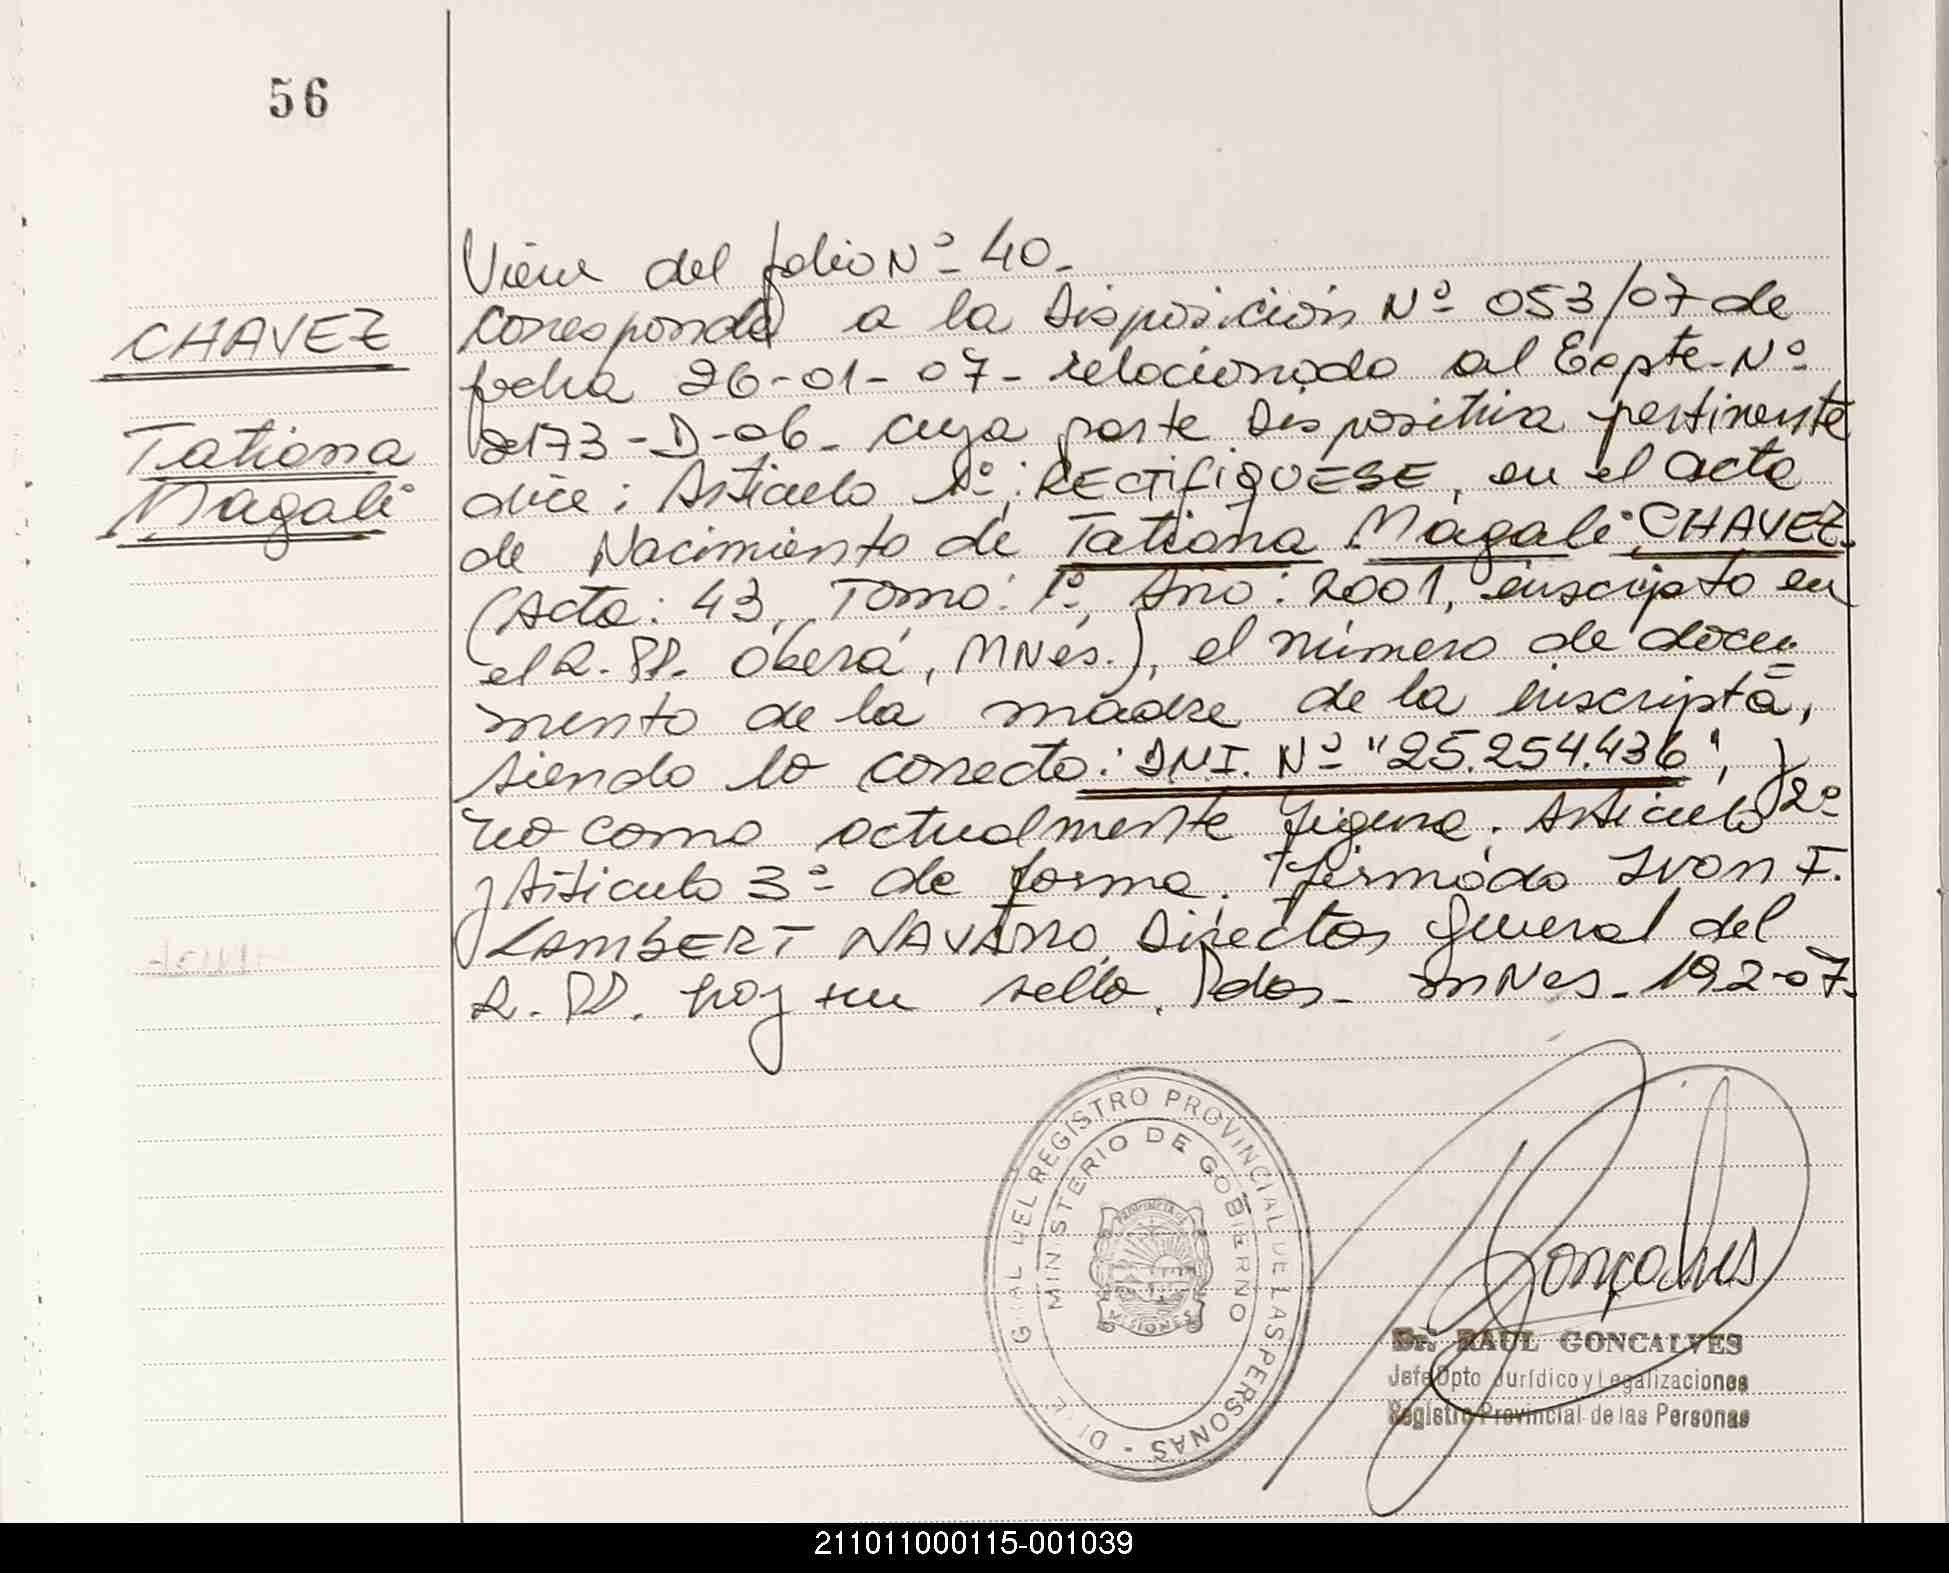 56
CHAVEZ
Tatiana
Magali
Viene del folio Nº 40.
Corresponde a la Disposición Nº 053/07 de
fecha 26-01-07- relacionado al Expte. Nº
2173-D-06- cuya parte Dispositiva pertinente
dice: Artículo 1º: RECTIFIQUESE, en el acta
de Nacimiento de Tatiana Magali CHAVEZ.
(Acta: 43, Tomo: 1º, Año: 2001, inscripto en
el R.PP. Oberá, MNes.), el número de docu
mento de la madre de la inscripta,
siendo lo correcto: DN.I. Nº "25.254.436", y
no como actualmente figura. Artículo 2º
y Artículo 3º de forma. Firmado Ivon F.
LAMBERT NAVARRO, Director General del
R.PP. hay un sello. Pdas- MNes. 19-2-07.
GRAL DEL REGISTRO PROVINCIAL DE LAS PERSONAS - DI
MINISTERIO DE GOBIERNO
PROVINCIA DE
MISIONES
Gonçalves
Dr. RAUL GONCALVES
Jefe Dpto Jurídico y Legalizaciones
Registro Provincial de las Personas
211011000115-001039